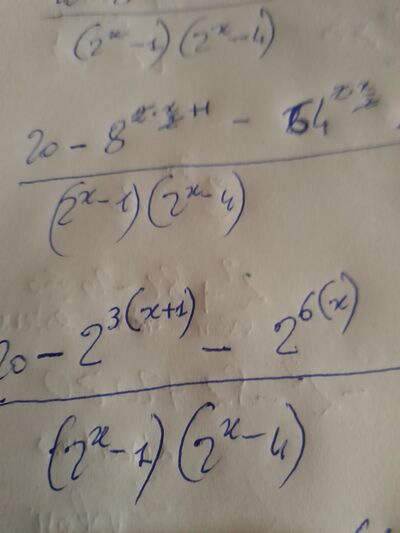 (2^x - 1) (2^x - 4)
20 - 8^{x · x/2 + 1} - 64^{x · x/2}
(2^x - 1) (2^x - 4)
20 - 2^{3(x+1)} - 2^{6(x)}
(2^x - 1) (2^x - 4)